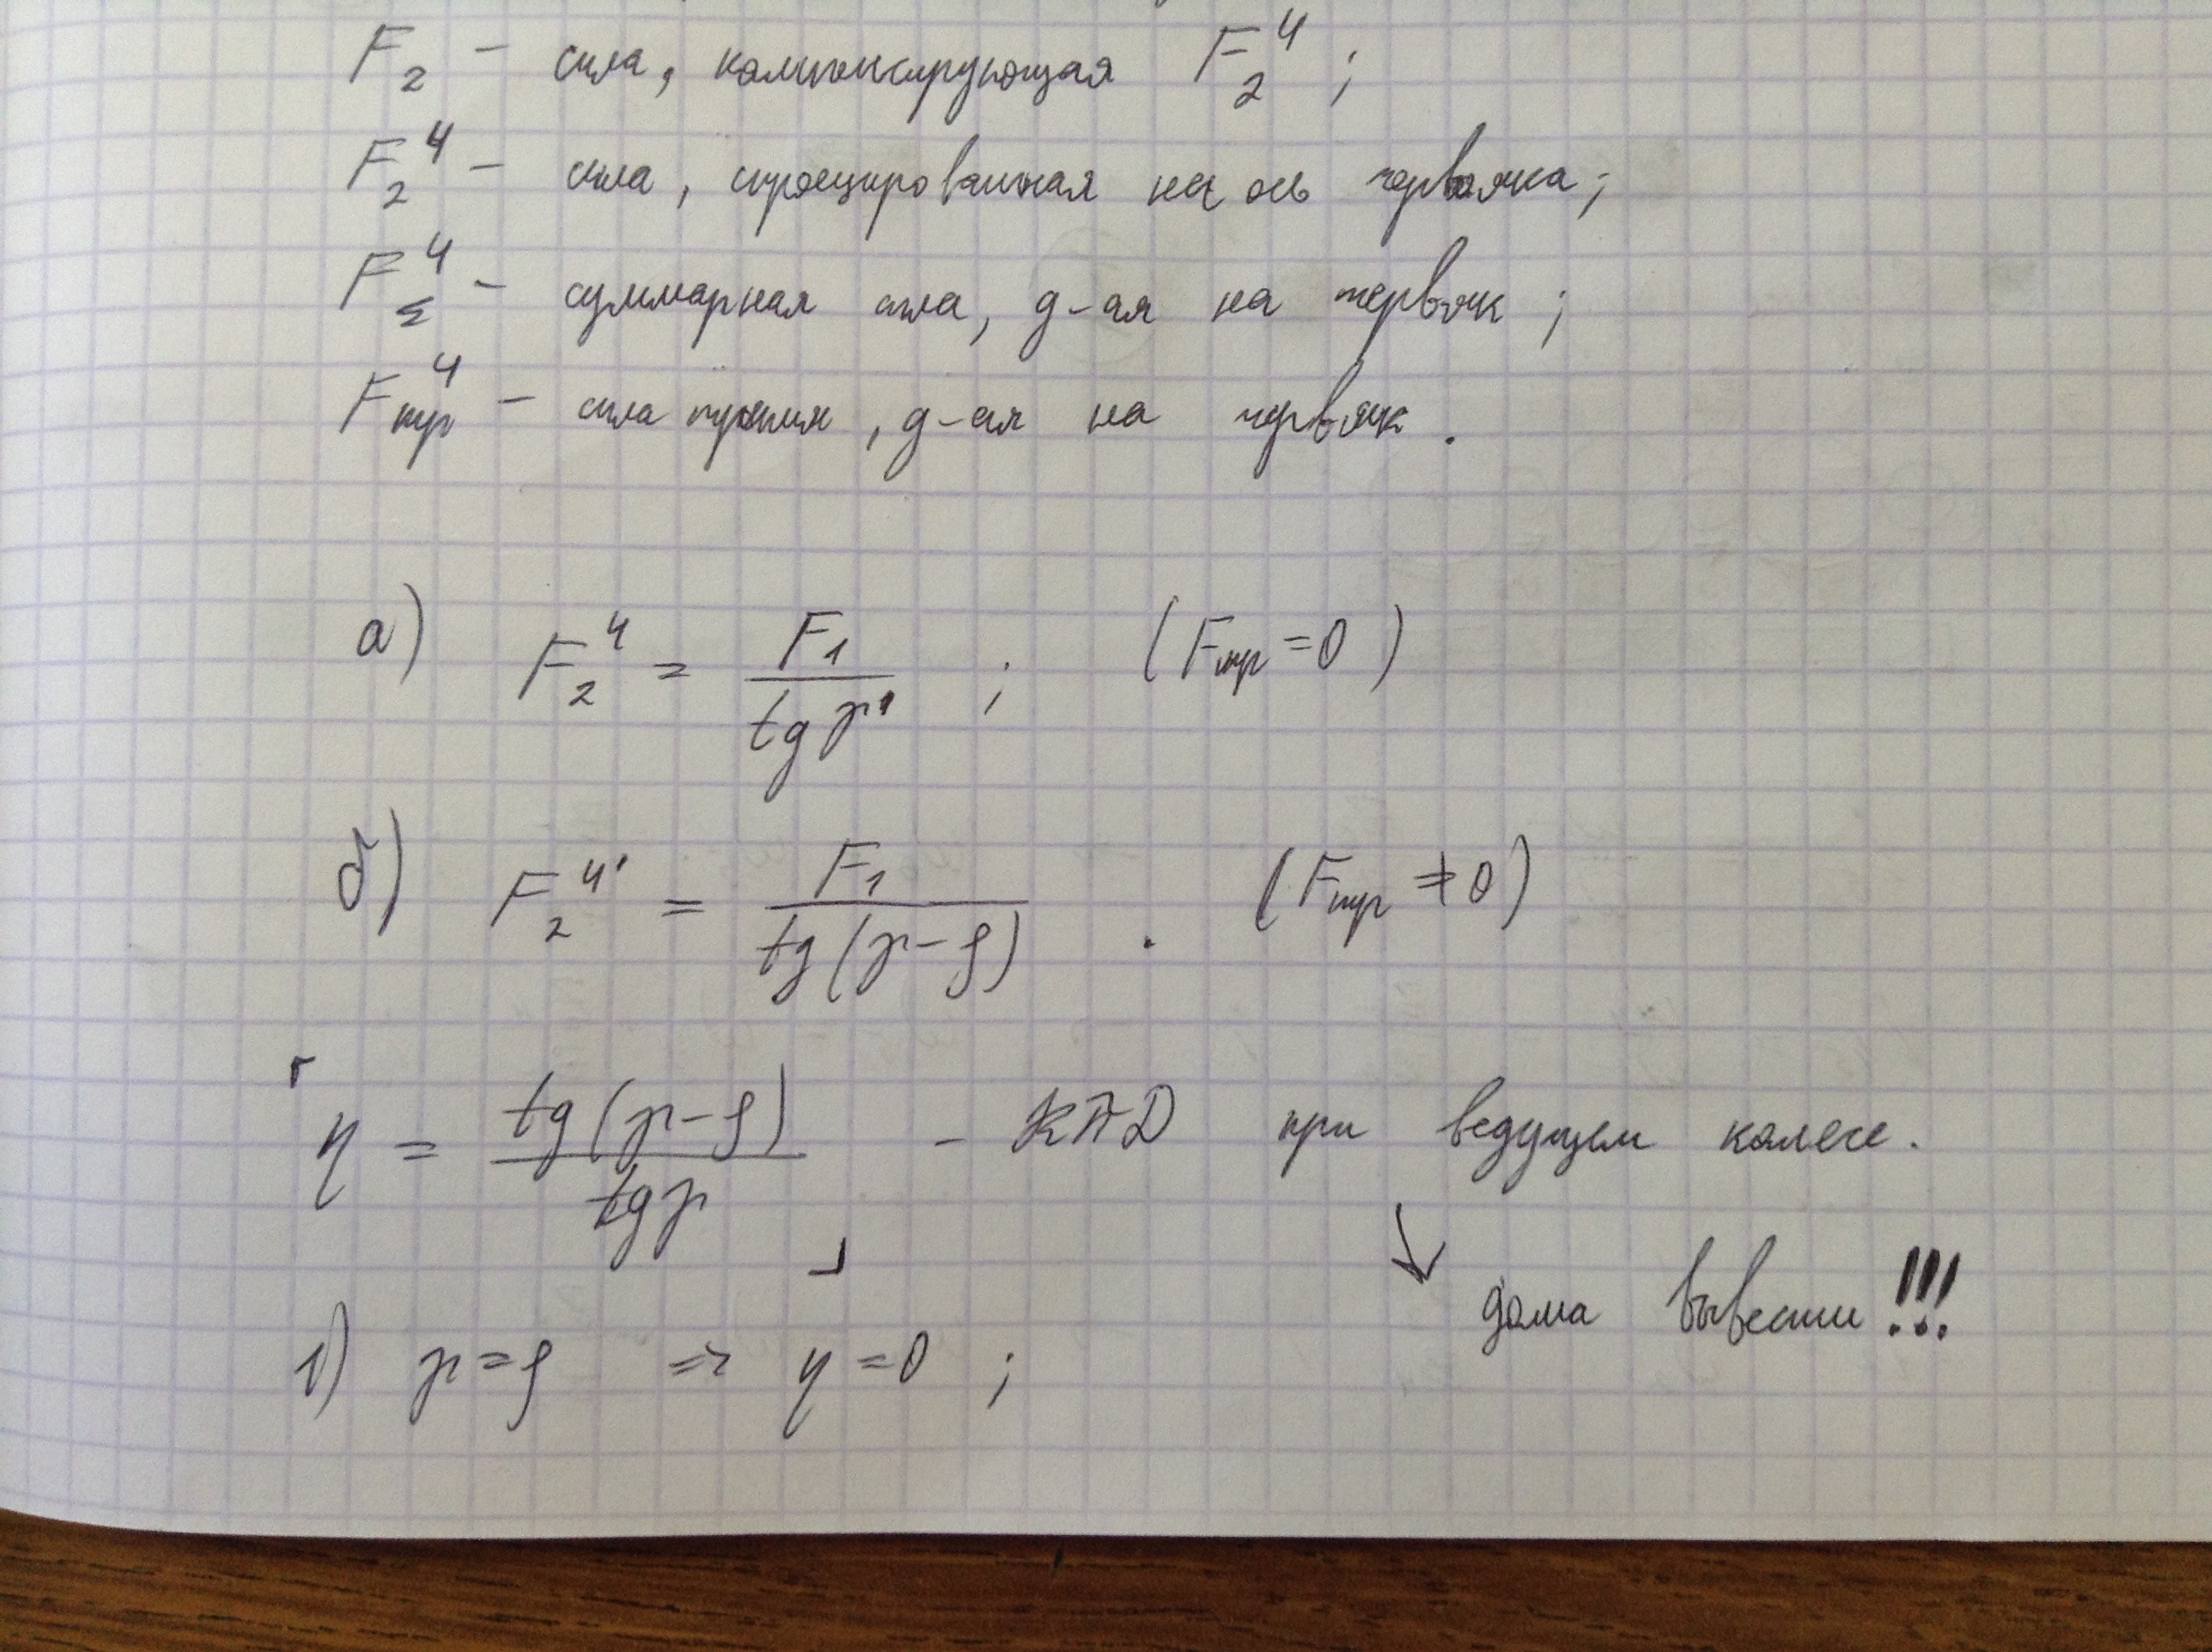 F₂ – сила, компенсирующая F₂ч ;
F₂ч – сила, спроецированная на ось червяка;
F_Σч – суммарная сила, д-ая на червяк ;
Fтрч – сила трения, д-ая на червяк .
а) F₂ч = F₁ / tg γ ; (Fтр = 0)
б) F₂ч' = F₁ / tg(γ-ρ) . (Fтр ≠ 0)
η = tg(γ-ρ) / tg γ – КПД при ведущем колесе.
↓ дома вывести!!!
1) γ = ρ ⇒ η = 0 ;